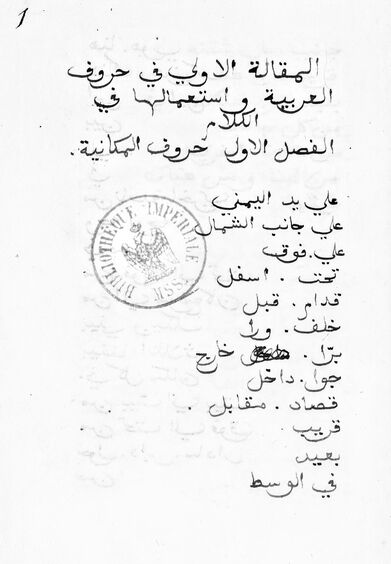 1
المقالة الاولي في حروف
العربية و استعمالها في
الكلام
الفصل الاول حروف المكانية.
علي يد اليمني
علي جانب الشمال
علي. فوق
تحت. اسفل
قدام. قبل
خلف. ورا
برّا. خارج
جوا. داخل
قصاد. مقابل.
قريب
بعيد
في الوسط
BIBLIOTHÈQUE IMPERIALE
MSS.